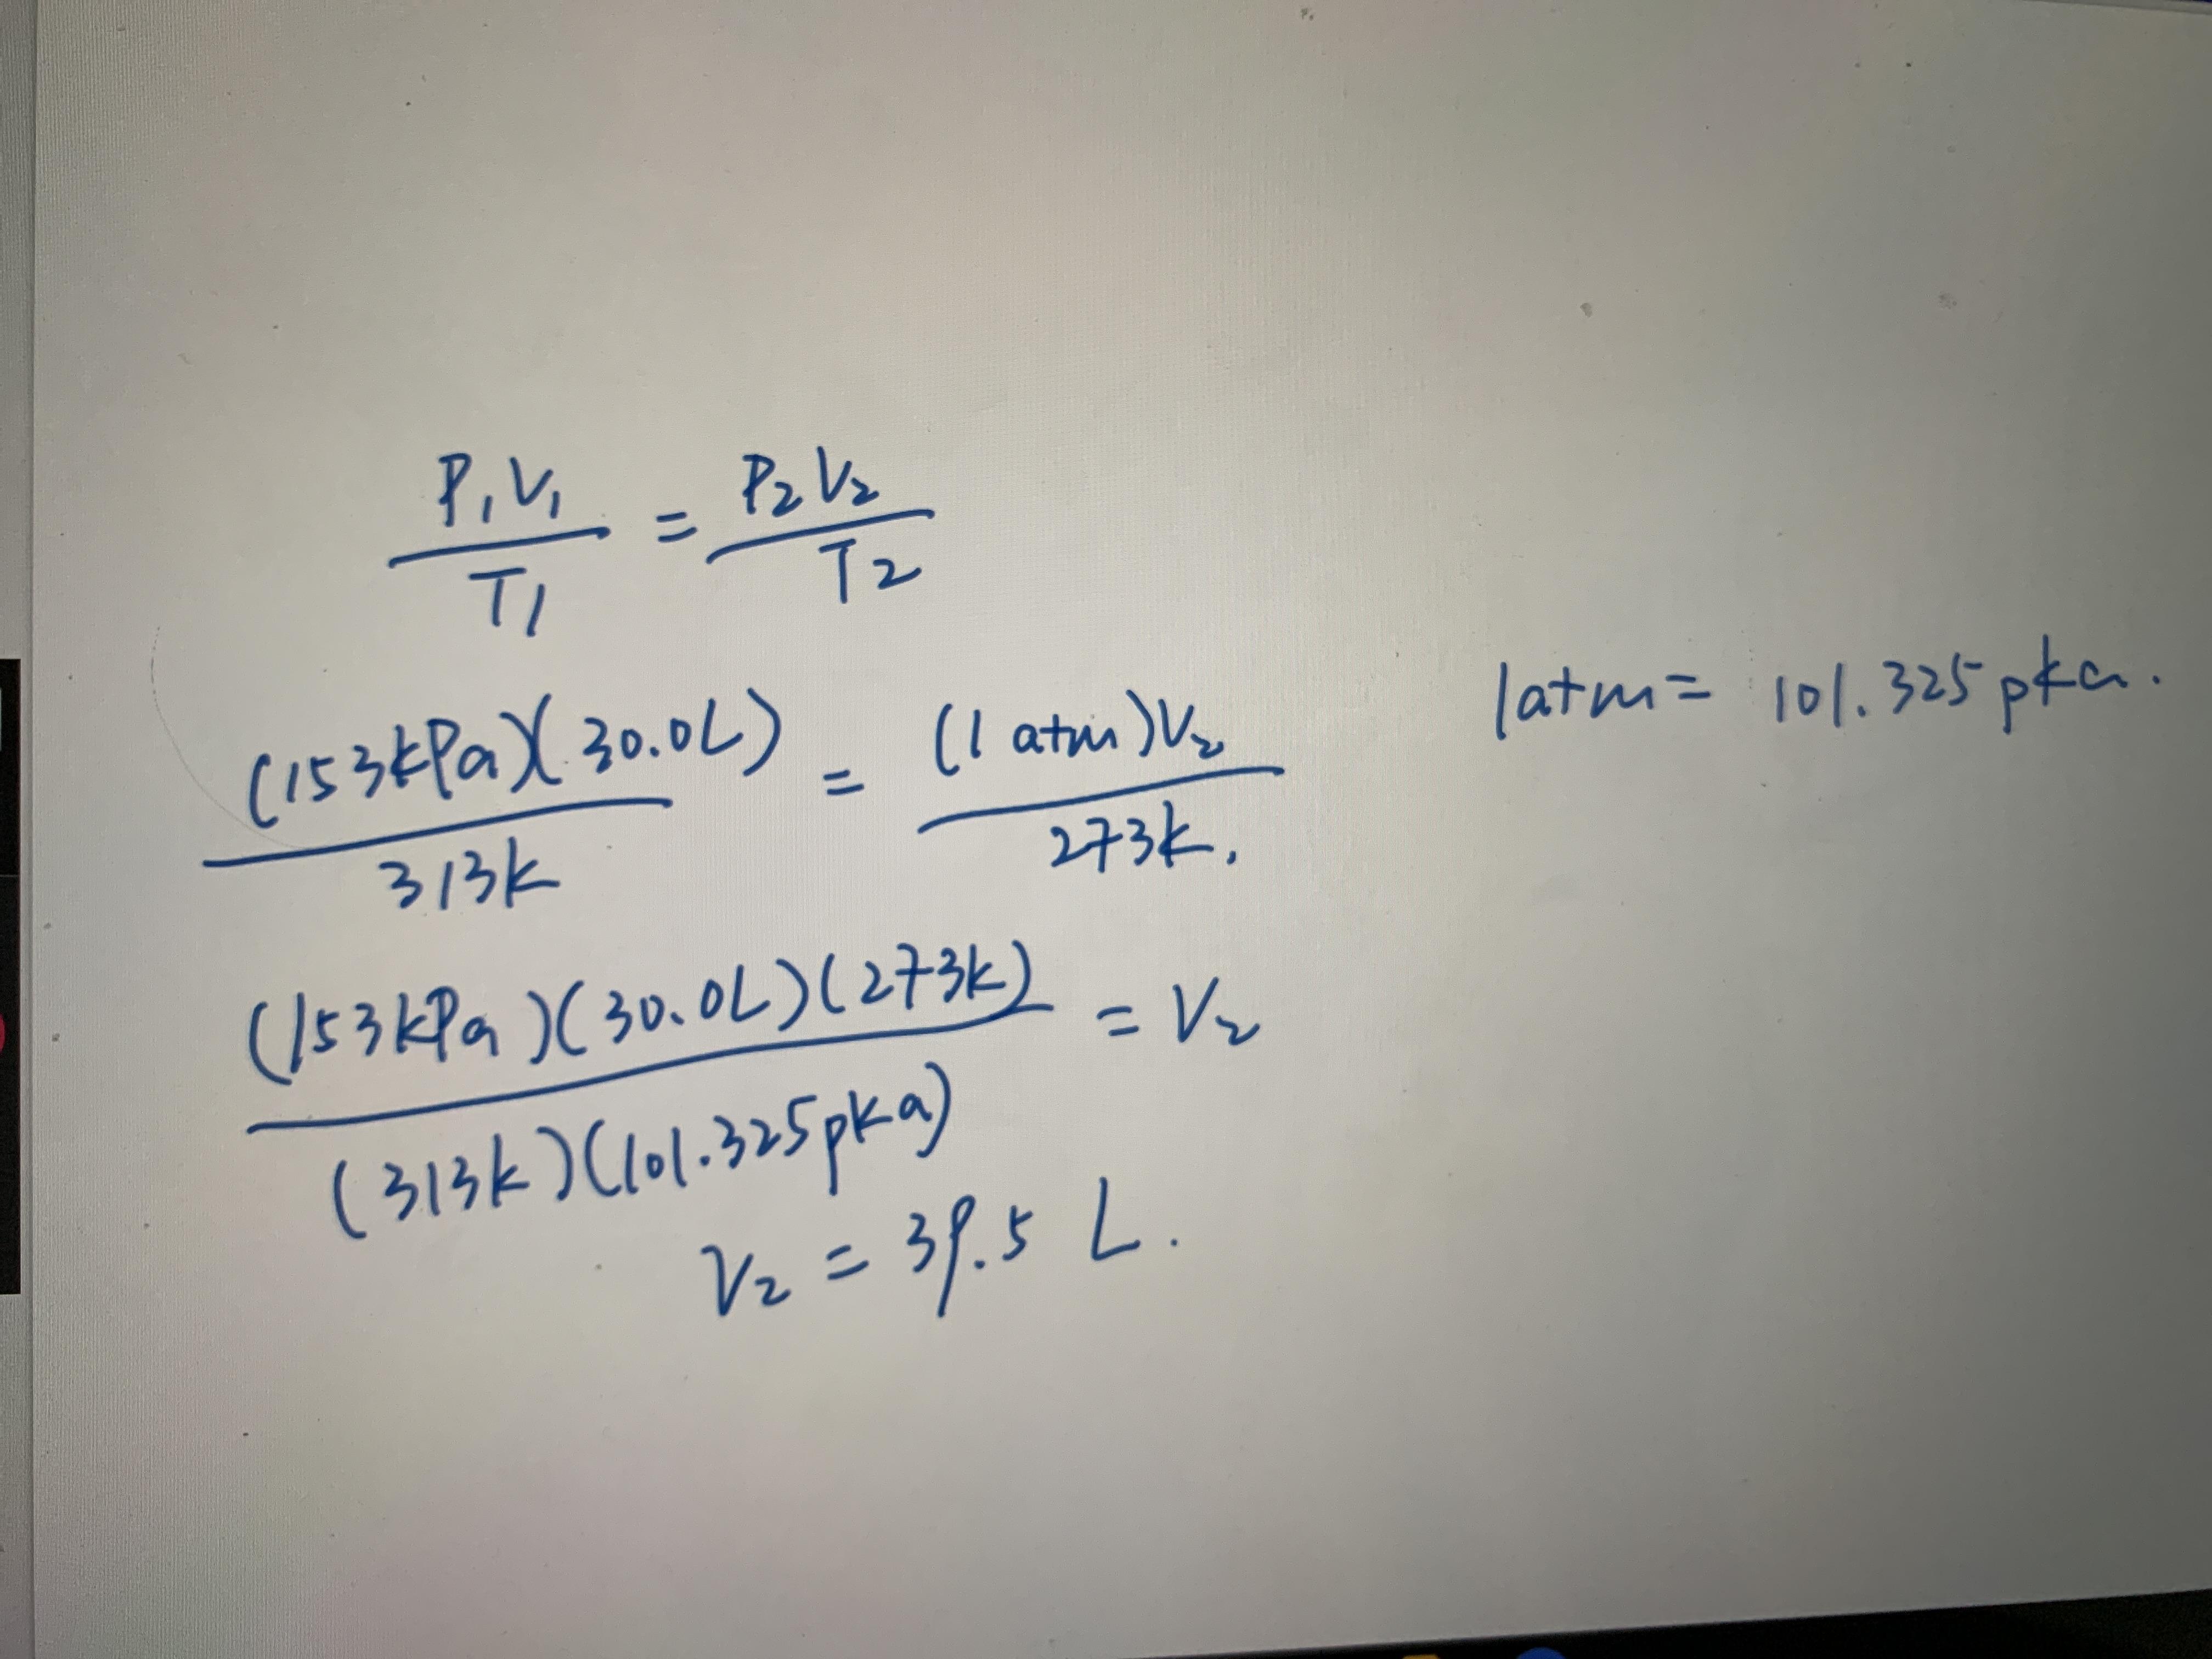 P₁V₁/T₁ = P₂V₂/T₂
(153kPa)(30.0L)/313k = (1 atm)V₂/273k. 1atm = 101.325pka.
(153kPa)(30.0L)(273k)/(313k)(101.325pka) = V₂
V₂ = 39.5 L.